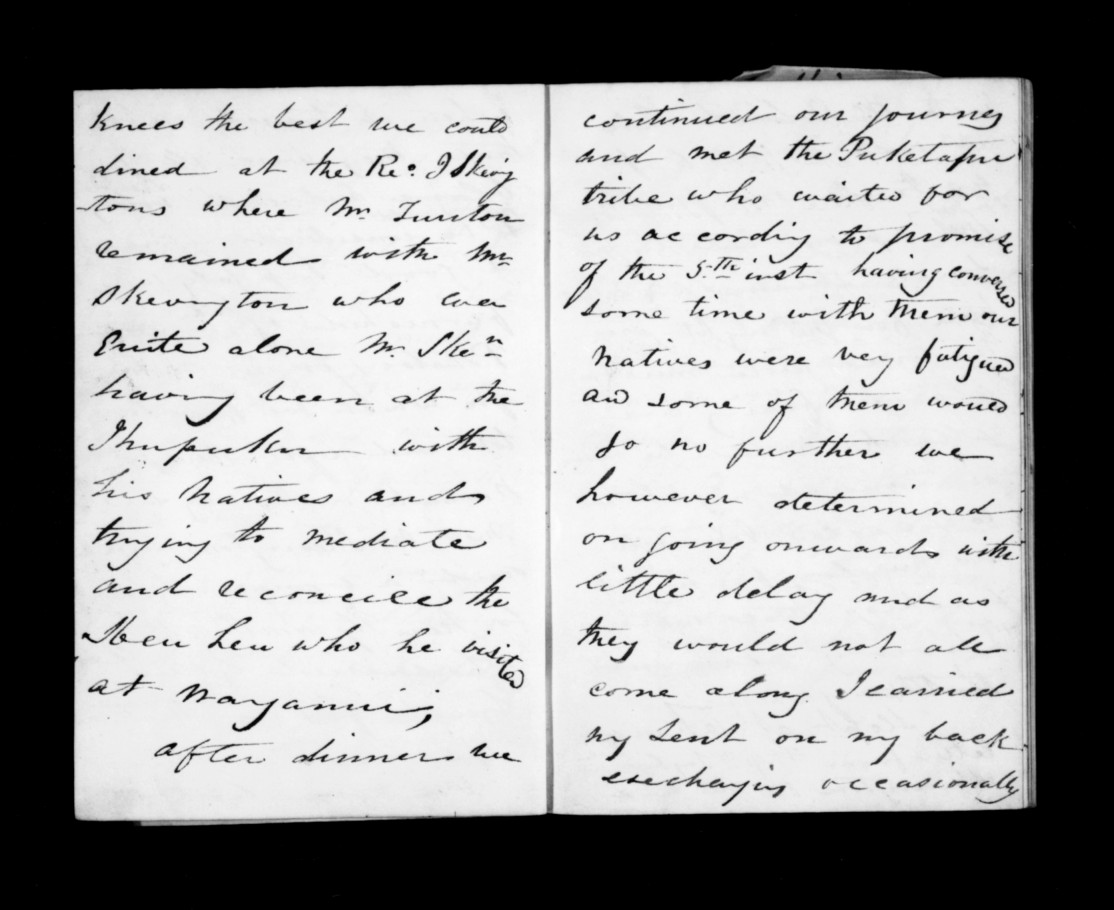 knees the best we could
dined at the Rev. J Skevg
tons where Mr. Turton
remained with Mr
Skevington who was
Quite alone Mr. Sken
having been at the
with
his natives and
trying to mediate
and reconcile the
Heu heu who he visited
at
after dinner we
continued our journey
and met the Puketapu
tribe who waited for
us according to promise
of the 5.th inst having conversed
some time with them our
natives were very fatigued
and some of them would
go no further we
however determined
on going onwards with
little delay and as
they would not all
come along I carried
my tent on my back
exchanging occasionally